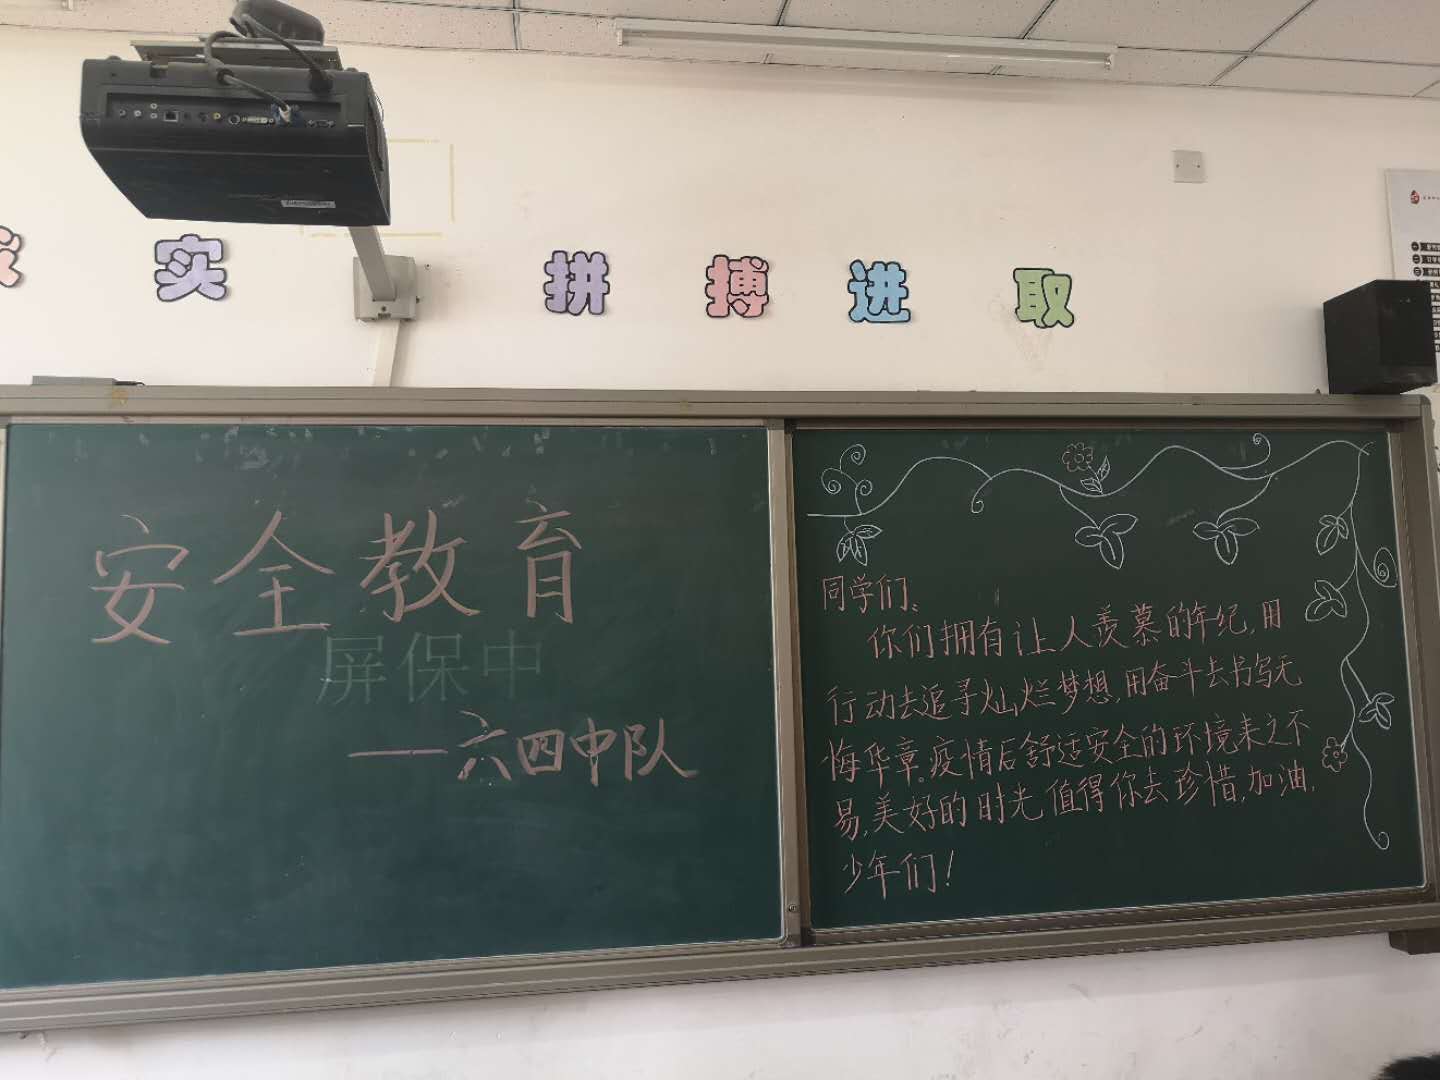 实 拼 搏 进 取
安全教育
屏保中
——六四中队
同学们、
你们拥有让人羡慕的年纪,用
行动去追寻灿烂梦想,用奋斗去书写无
悔华章。疫情后舒适安全的环境来之不
易,美好的时光值得你去珍惜,加油,
少年们!